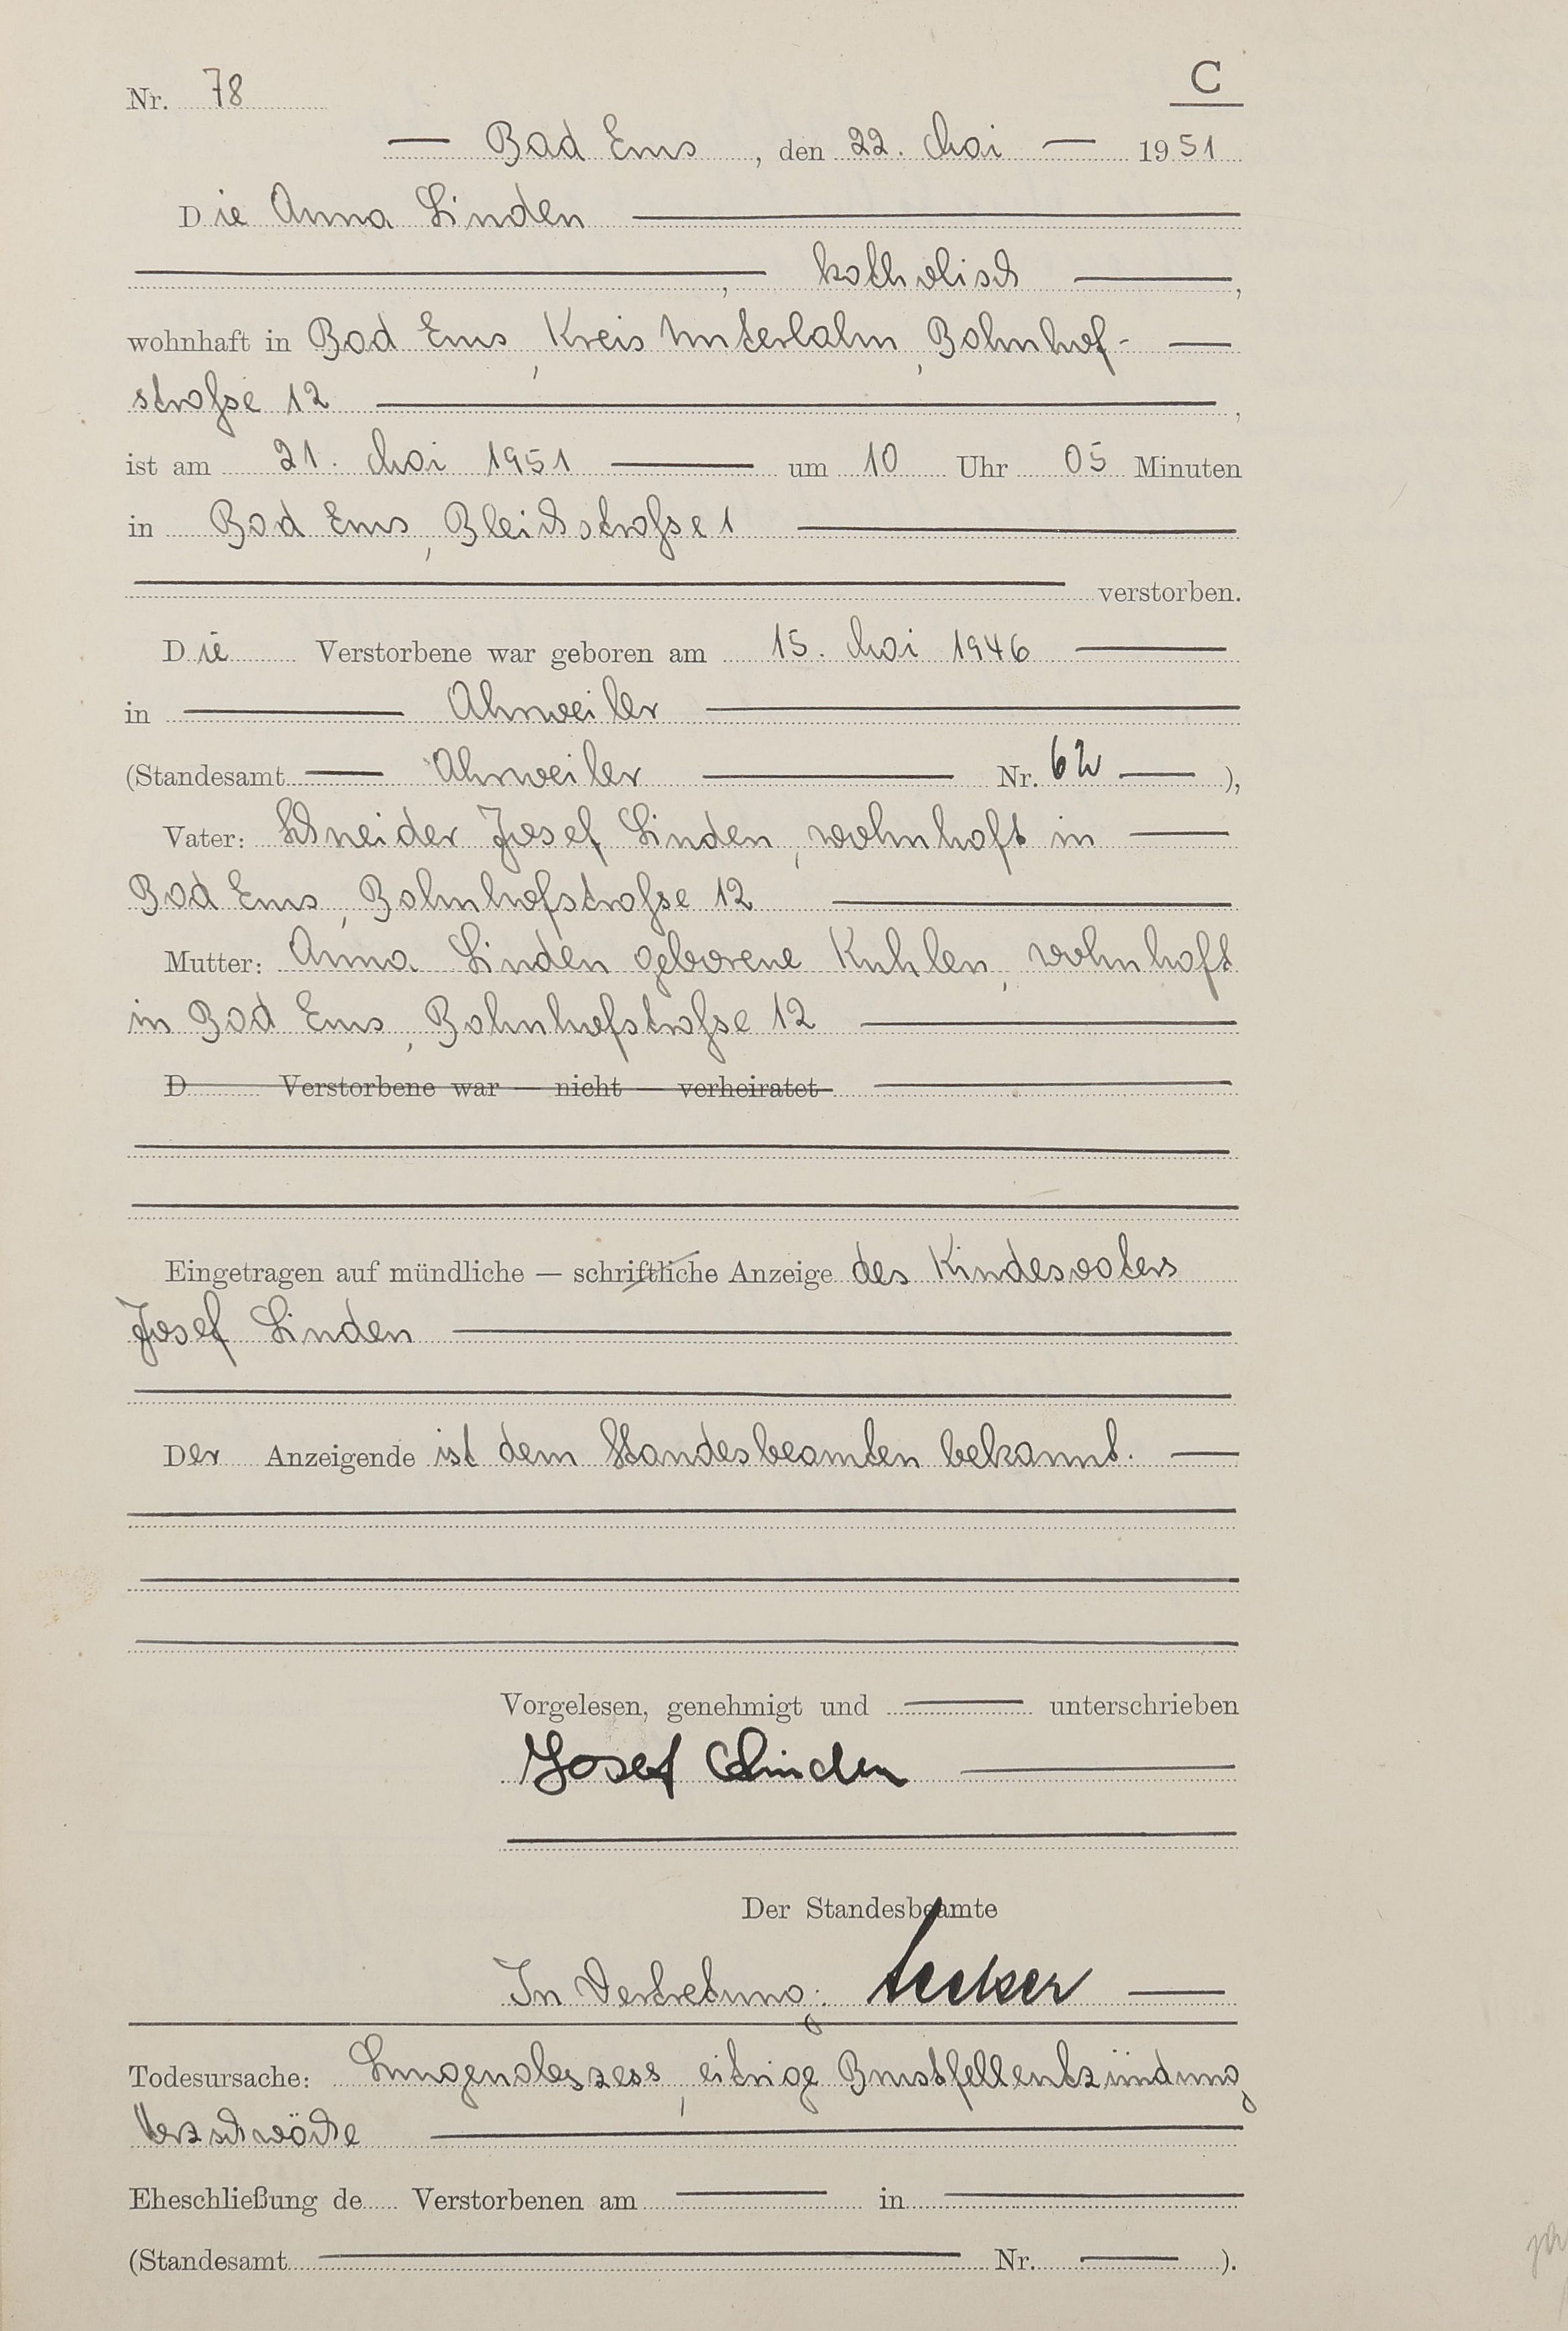 Nr. 78
C
Bad Ems, den 22. Mai 1951
Die Anna Linden
, katholisch,
wohnhaft in Bad Ems, Kreis Unterlahn, Bahnhof-
straße 12,
ist am 21. Mai 1951 um 10 Uhr 05 Minuten
in Bad Ems, Bleichstraße 1
verstorben.
Die Verstorbene war geboren am 15. Mai 1946
in Ahrweiler
(Standesamt Ahrweiler Nr. 62),
Vater: Schneider Josef Linden, wohnhaft in
Bad Ems, Bahnhofstraße 12
Mutter: Anna Linden geborene Kuhlen, wohnhaft
in Bad Ems, Bahnhofstraße 12
D Verstorbene war — nicht — verheiratet
Eingetragen auf mündliche — schriftliche Anzeige des Kindesvaters
Josef Linden
Der Anzeigende ist dem Standesbeamten bekannt.
Vorgelesen, genehmigt und unterschrieben
Josef Linden
Der Standesbeamte
In Vertretung:
Todesursache: Lungenabszess, eitrige Brustfellentzündung,
Herzschwäche
Eheschließung de Verstorbenen am in
(Standesamt Nr. ).